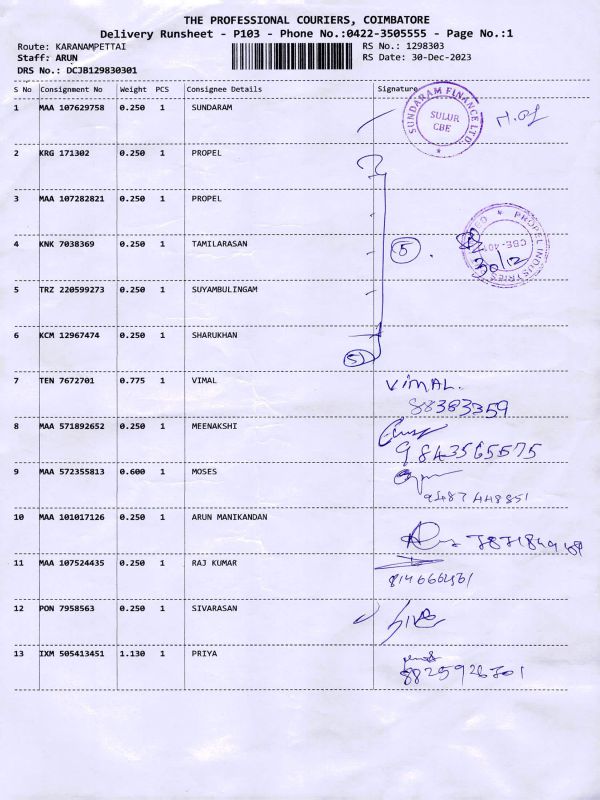 THE PROFESSIONAL COURIERS, COIMBATORE
Delivery Runsheet - P103 - Phone No.:0422-3505555 - Page No.:1
Route: KARANAMPETTAI RS No.: 1298303
Staff: ARUN RS Date: 30-Dec-2023
DRS No.: DCJB129830301
S No Consignment No Weight PCS Consignee Details Signature
1 MAA 107629758 0.250 1 SUNDARAM
SUNDARAM FINANCE LTD.
SULUR
CBE
2 KRG 171302 0.250 1 PROPEL
3 MAA 107282821 0.250 1 PROPEL
PROPEL INDUSTRIES
30/12
4 KNK 7038369 0.250 1 TAMILARASAN
5
5 TRZ 220599273 0.250 1 SUYAMBULINGAM
6 KCM 12967474 0.250 1 SHARUKHAN
5
7 TEN 7672701 0.775 1 VIMAL VIMAL.
88383359
8 MAA 571892652 0.250 1 MEENAKSHI
9843565575
9 MAA 572355813 0.600 1 MOSES
9487448851
10 MAA 101017126 0.250 1 ARUN MANIKANDAN
11 MAA 107524435 0.250 1 RAJ KUMAR
12 PON 7958563 0.250 1 SIVARASAN
13 IXM 505413451 1.130 1 PRIYA